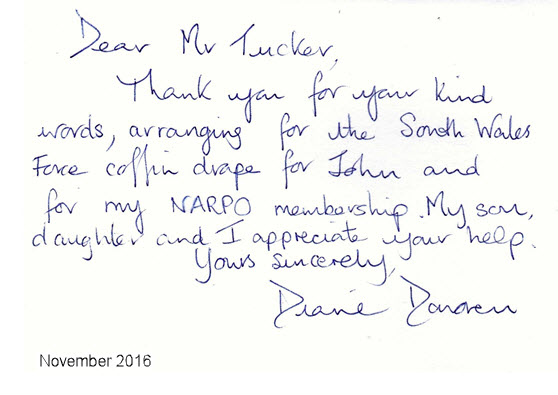 Dear Mr Tucker,
Thank you for your kind
words, arranging for the South Wales
Force coffin drape for John and
for my NARPO membership. My son,
daughter and I appreciate your help.
Yours sincerely,
Diane Donoven
November 2016